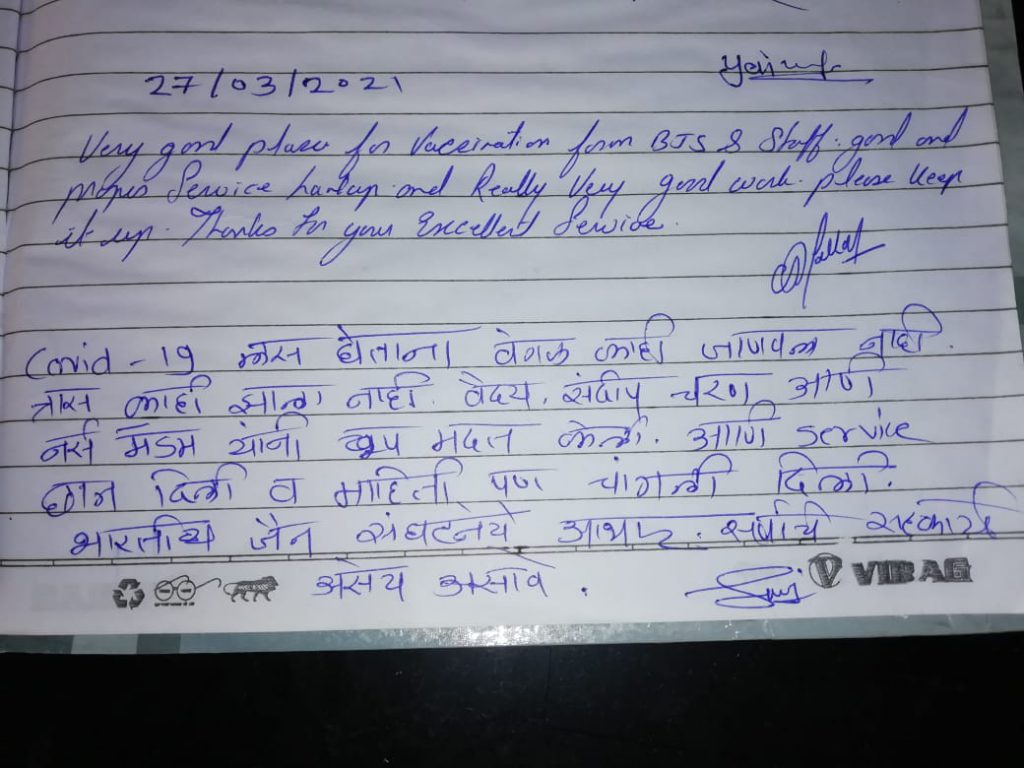 27/03/2021
Very good place for Vacceination form BJS & Staff. good and
Service and Really Very good work. please keep
it up. Thanks for your Excellent Service.
Covid-19 लस घेताना वेगळ काही जाणवल नाही.
त्रास काही झाला नाही. वैदय. संदीप चरण आणी
नर्स मॅडम यांनी खूप मदत केली. आणि service
छान दिली व माहिती पण चांगली दिली.
भारतीय जैन संघटनेचे आभार. सर्वांचे सहकार्य
असेच असावे.
VIBAG